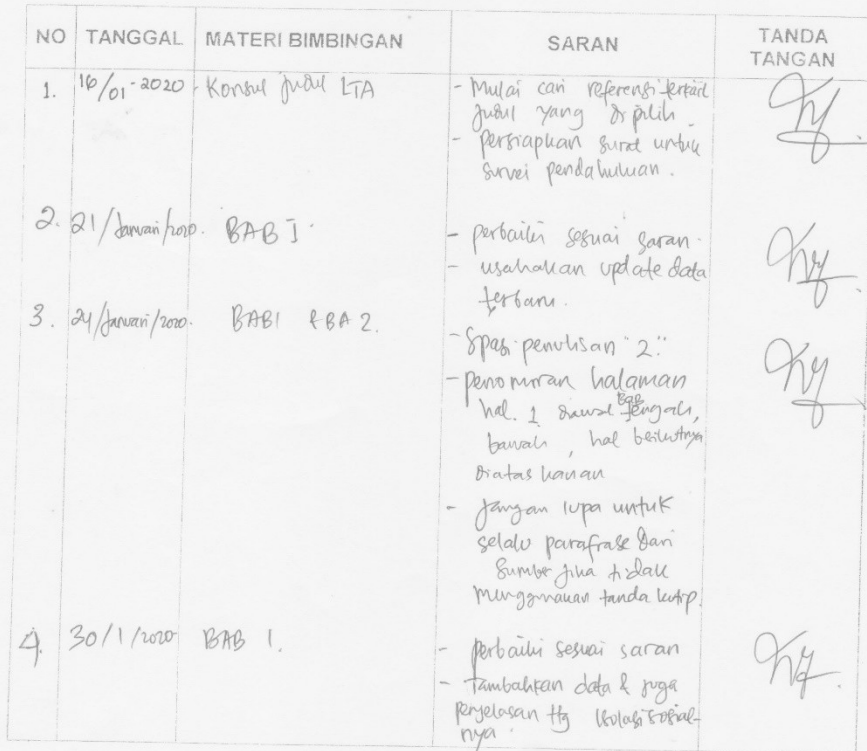 NO TANGGAL MATERI BIMBINGAN SARAN TANDA TANGAN
1. 16/01-2020 - Konsul judul LTA - Mulai cari referensi terkait
judul yang dipilih
- persiapkan surat untuk
survei pendahuluan.
2. 21/Januari/2020. BAB I. - perbaiki sesuai saran.
- usahakan update data
terbaru.
3. 24/Januari/2020. BAB1 & BA 2.
- Spasi penulisan "2".
- penomoran halaman
hal. 1 diawal Bab tengah,
bawah, hal berikutnya
diatas kanan
- Jangan lupa untuk
selalu parafrase dari
sumber jika tidak
menggunakan tanda kutip.
4. 30/1/2020 BAB 1. - perbaiki sesuai saran
- Tambahkan data & juga
penjelasan ttg isolasi sosial-
nya.